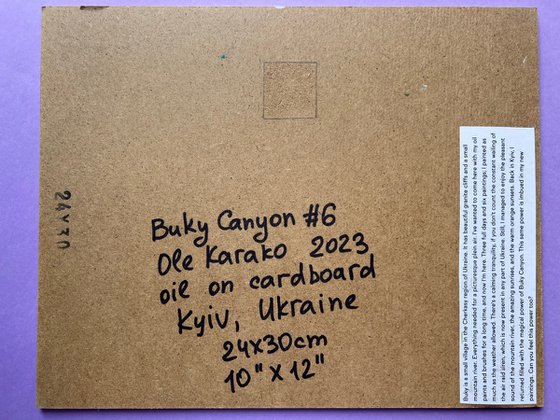 24x30
Buky Canyon #6
Ole Karako 2023
oil on cardboard
Kyiv, Ukraine
24x30cm
10" x 12"
Buky is a small village in the Cherkasy region of Ukraine. It has beautiful granite cliffs and a small
mountain river. Everything needed for a picturesque plein air. I've wanted to come here with my oil
paints and brushes for a long time, and now I'm here. Three full days and six paintings; I painted as
much as the weather allowed. There's a calming tranquility, if you don't count the constant wailing of
the air raid siren, which is now present in any part of Ukraine. Still, I managed to enjoy the pleasant
sound of the mountain river, the amazing sunrises, and the warm orange sunsets. Back in Kyiv, I
returned filled with the magical power of Buky Canyon. This same power is imbued in my new
paintings. Can you feel this power too?